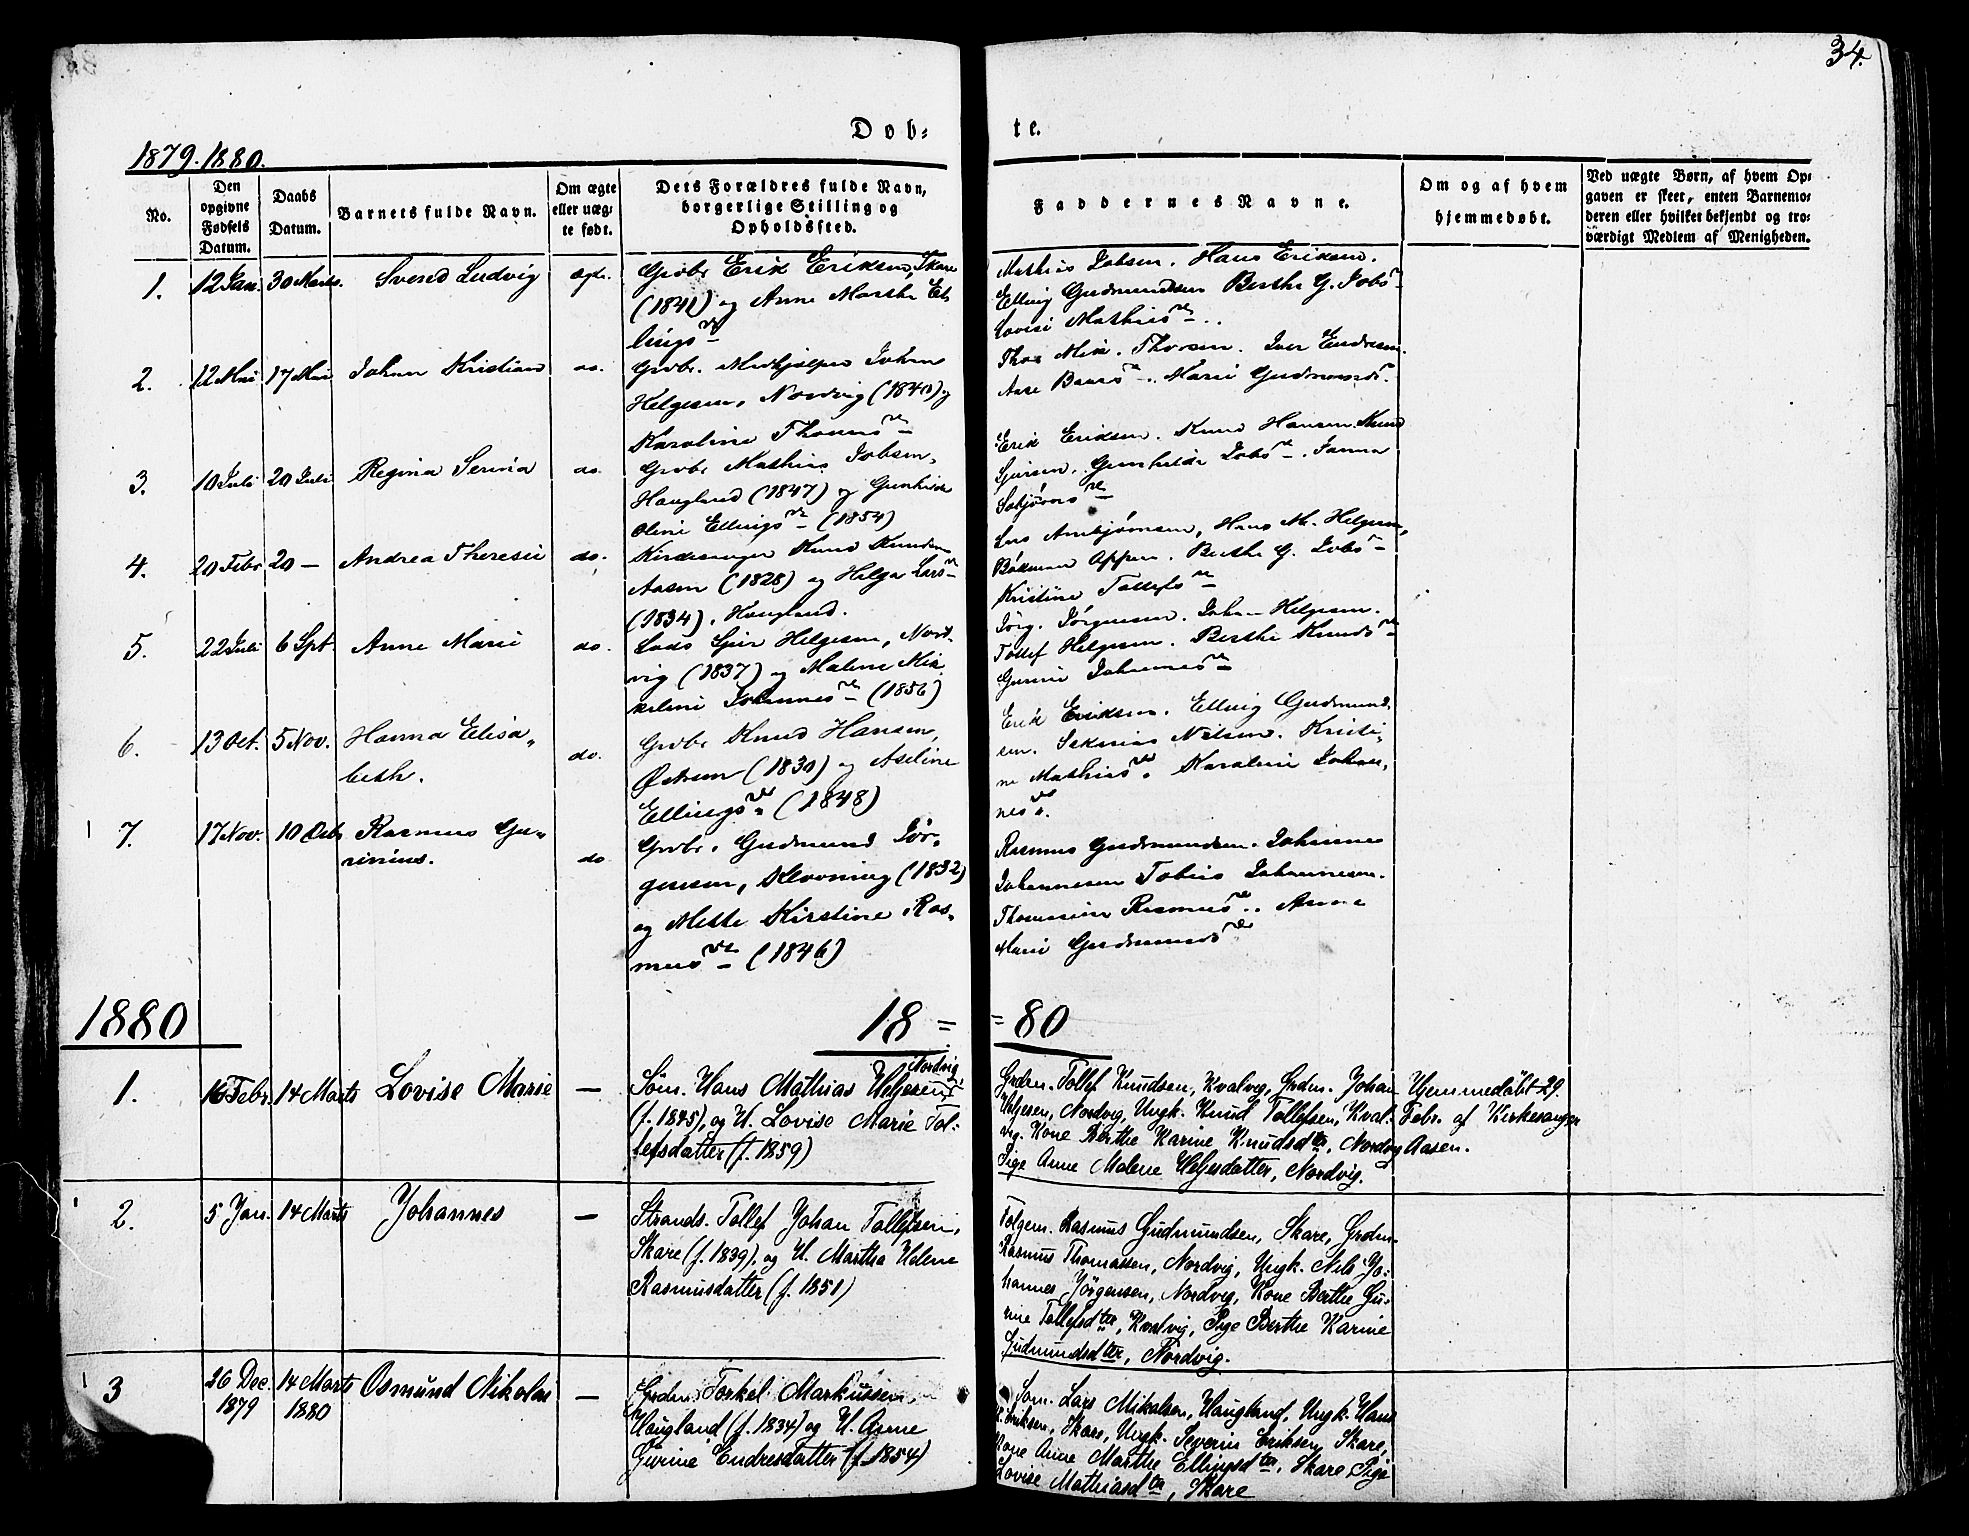 34.
Døb-
te.
1879. 1880.
No.
Den opgivne Fødsels Datum.
Daabs Datum.
Barnets fulde Navn.
Om ægte eller uæg-
te født.
Dets Forældres fulde Navn,
borgerlige Stilling og
Opholdssted.
Faddernes Navne.
Om og af hvem
hjemmedøbt.
Ved uægte Børn, af hvem Op-
gaven er skeet, enten Barnemo-
deren eller hvilket bekjendt og tro-
værdigt Medlem af Menigheden.
1. 12 Jan. 30 Marts. Svend Ludvig ægte.
Grbr. Erik Eriksen, Skare
(1841) og Anne Marthe El-
lings
Mathias Jobsen. Hans Eriksen.
Elling Gudmundsen Berthe G. Jobs
Lovise Mathias
2. 12 Mai 17 Mai Johan Kristian do.
Grbr. Medhjælper Johan
Helgesen, Nordvig (1840) og
Karoline Thomas
Thor Mik. Thorsen. Iver Endresen.
Ane Marie Gudmunds
3. 10 Juli 20 Juli Regina Serina do.
Grbr Mathias Jobsen,
Haugland (1847) og Gunhilde
Oline Ellings (1854)
Erik Eriksen. Knud Hansen. Knud
Gunhilde Jobs. Janna
4. 20 Febr 20 — Andrea Theresie do.
Kirkesanger Knud Knudsen
Aasen (1828) og Helga Lars
(1834), Haugland.
Hans M. Helgesen,
Berthe G. Jobs
Kristine Tollefs
5. 22 Juli 6 Spt. Anne Marie do.
Lods Sjur Helgesen, Nord-
vig (1837) og Malene Mik-
keline Johannes (1856)
Jørg. Jørgensen. Johan Helgesen.
Tollef Helgesen. Berthe Knuds
Gurine Johannes
6. 13 Oct. 5 Nov. Hanna Elisa-
beth. do.
Grbr Knud Hansen,
Østrem (1830) og Aseline
Ellings (1848)
Erik Eriksen. Elling Gudmund
sen. Sakarias Nilsen. Kristi-
ne Mathias. Karoline Johan-
nes
7. 17 Nov. 10 Deb. Rasmus Gu-
rinius. do
Grbr. Gudmund Jør-
gensen, Klovning (1832)
og Mette Kirstine Ras-
mus (1846)
Rasmus Gudmundsen. Johannes
Johannesen Tobias Johannesen.
Thomasine Rasmus. Anne
Marie Gudmunds
1880
18 =
= 80
1. 16 Febr. 14 Marts Lovise Marie —
Nordvig
Søm. Hans Mathias Helgesen
(f. 1845), og H. Lovise Marie Tol-
lefsdatter (f. 1859)
Grdm. Tollef Knudsen, Kvalvig, Grdm. Johan
Helgesen, Nordvig, Ungk. Knud Tollefsen, Kval-
vig, Kone Berthe Karine Knudsdtr, Nordvig
Pige Anne Malene Helgesdatter, Nordvig.
Hjemmedøbt 29.
Febr. af Kirkesanger
Aasen.
2. 5 Jan. 14 Marts Johannes —
Strands. Tollef Johan Tollefsen,
Skare (f. 1839), og H. Martha Helene
Rasmusdatter (f. 1851)
Følgem. Rasmus Gudmundsen, Skare, Grdm.
Rasmus Thomassen, Nordvig, Ungk. Nils Jo-
hannes Jörgensen, Nordvig, Kone Berthe Gu-
rine Tollefsdtr, Kvalvig, Pige Berthe Karine
Gudmundsdtr, Nordvig.
3 26 Dec. 1879 14 Marts 1880 Osmund Nikolai —
Grdm. Torkel Markussen,
Haugland (f. 1834) og H. Anne
Gurine Endresdatter (f. 1854)
Søm. Lars Mikalsen, Haugland, Ungk. Hans
Eriksen, Skare, Ungk. Severin Eriksen, Skare,
Kone Anne Marthe Ellingsdtr, Skare, Pige
Lovise Mathiasdtr, Skare